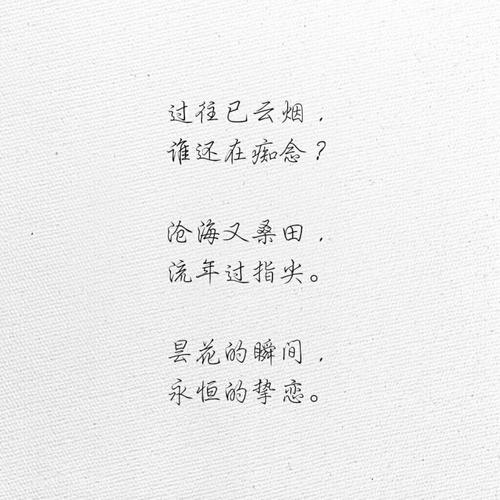 过往已云烟，
谁还在痴念？
沧海又桑田，
流年过指尖。
昙花的瞬间，
永恒的挚恋。